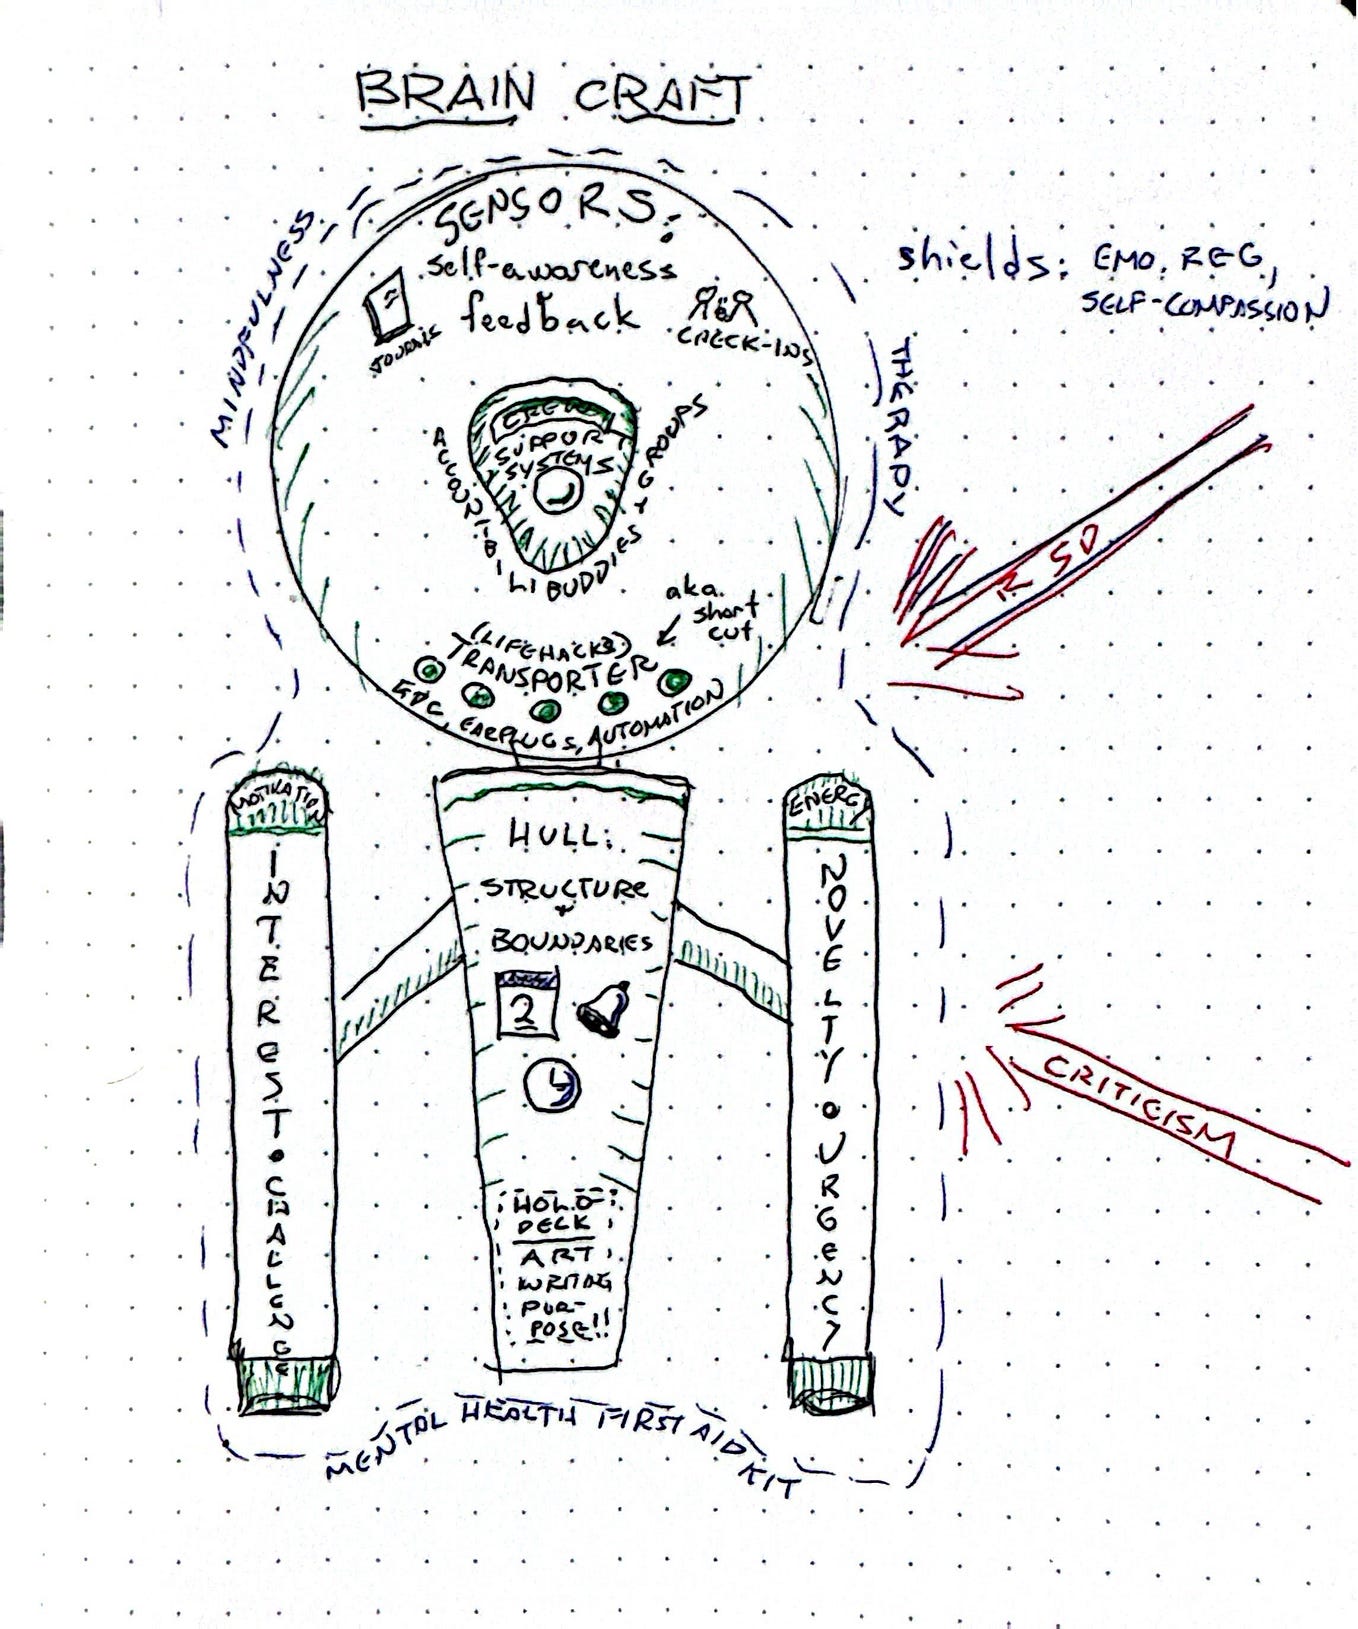 BRAIN CRAFT
SENSORS:
self-awareness
feedback
CHECK-INS
MINDFULNESS
shields: EMO. REG,
SELF-COMPASSION
THERAPY
CREW
SUPPORT
SYSTEMS
BUDDIES
GROUPS
RSD
aka.
short
cut
(LIFEHACKS)
TRANSPORTER
EDC, EARPLUGS, AUTOMATION
MOTIVATION
INTEREST • CHALLENGE
HULL:
STRUCTURE
+
BOUNDARIES
2
HOLO-
DECK
ART
WRITING
PUR-
POSE!!
ENERGY
NOVELTY • URGENCY
CRITICISM
MENTAL HEALTH FIRST AID KIT